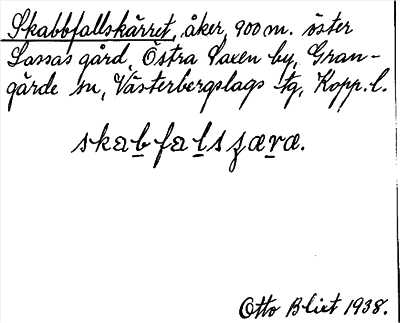 Skabbfallskärret, åker, 900 m. öster
Lassas gård, Östra Laxen by, Gran-
gärde sn, Västerbergslags tg, Kopp. l.
skabfalsʒæræ.
Otto Blixt 1938.